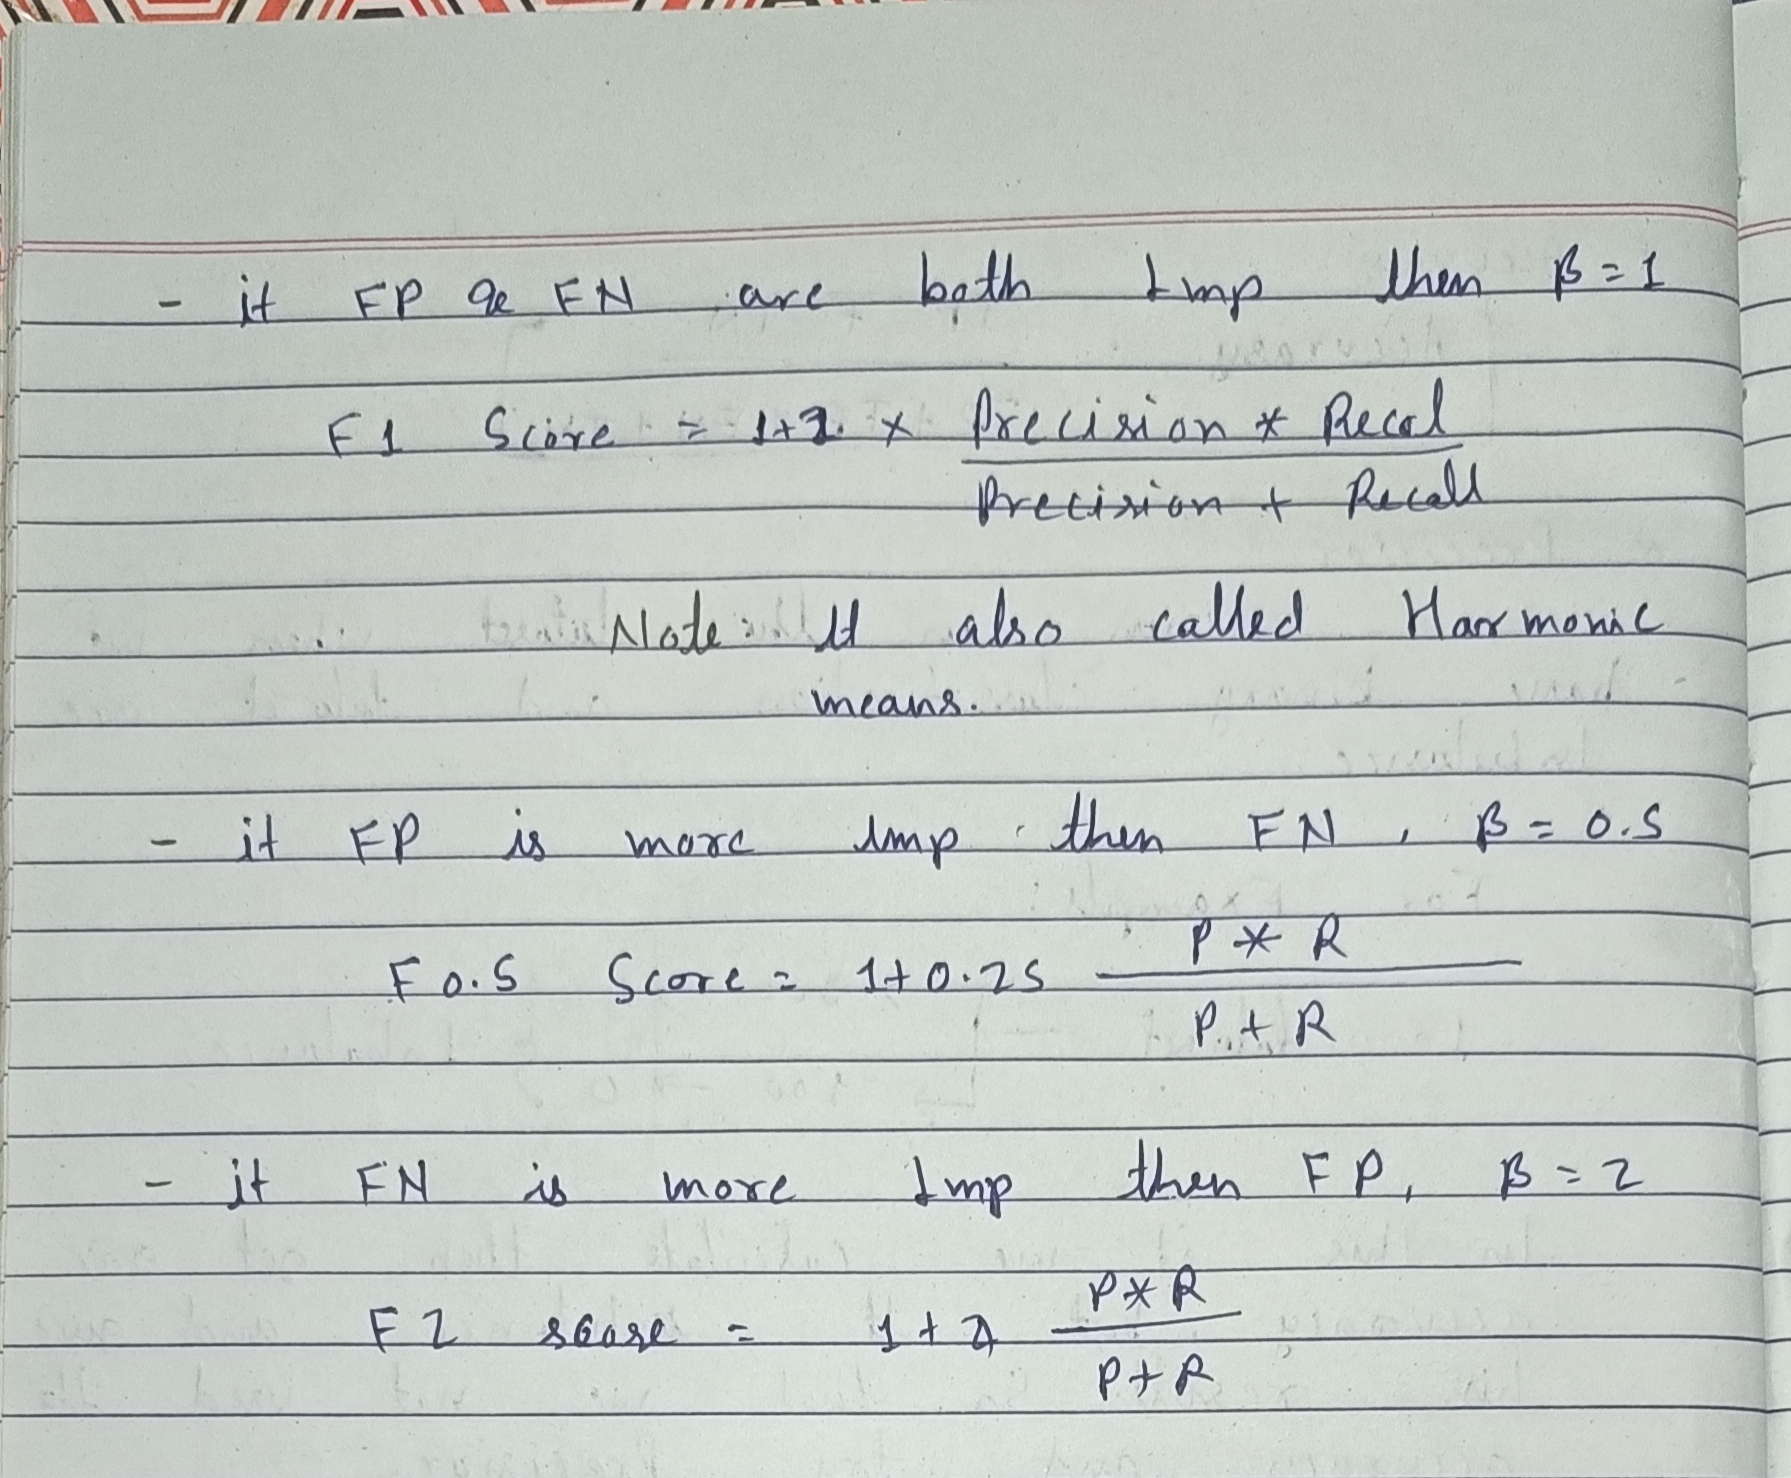 - if FP & FN are both Imp then β = 1
F1 Score = 1+1 × Precision * Recal
Precision + Recall
Note: It also called Harmonic
means.
- if FP is more Imp then FN, β = 0.5
P * R
F 0.5 Score = 1+0.25
P + R
- if FN is more Imp then FP, β = 2
P * R
F2 score = 1 + 4
P + R